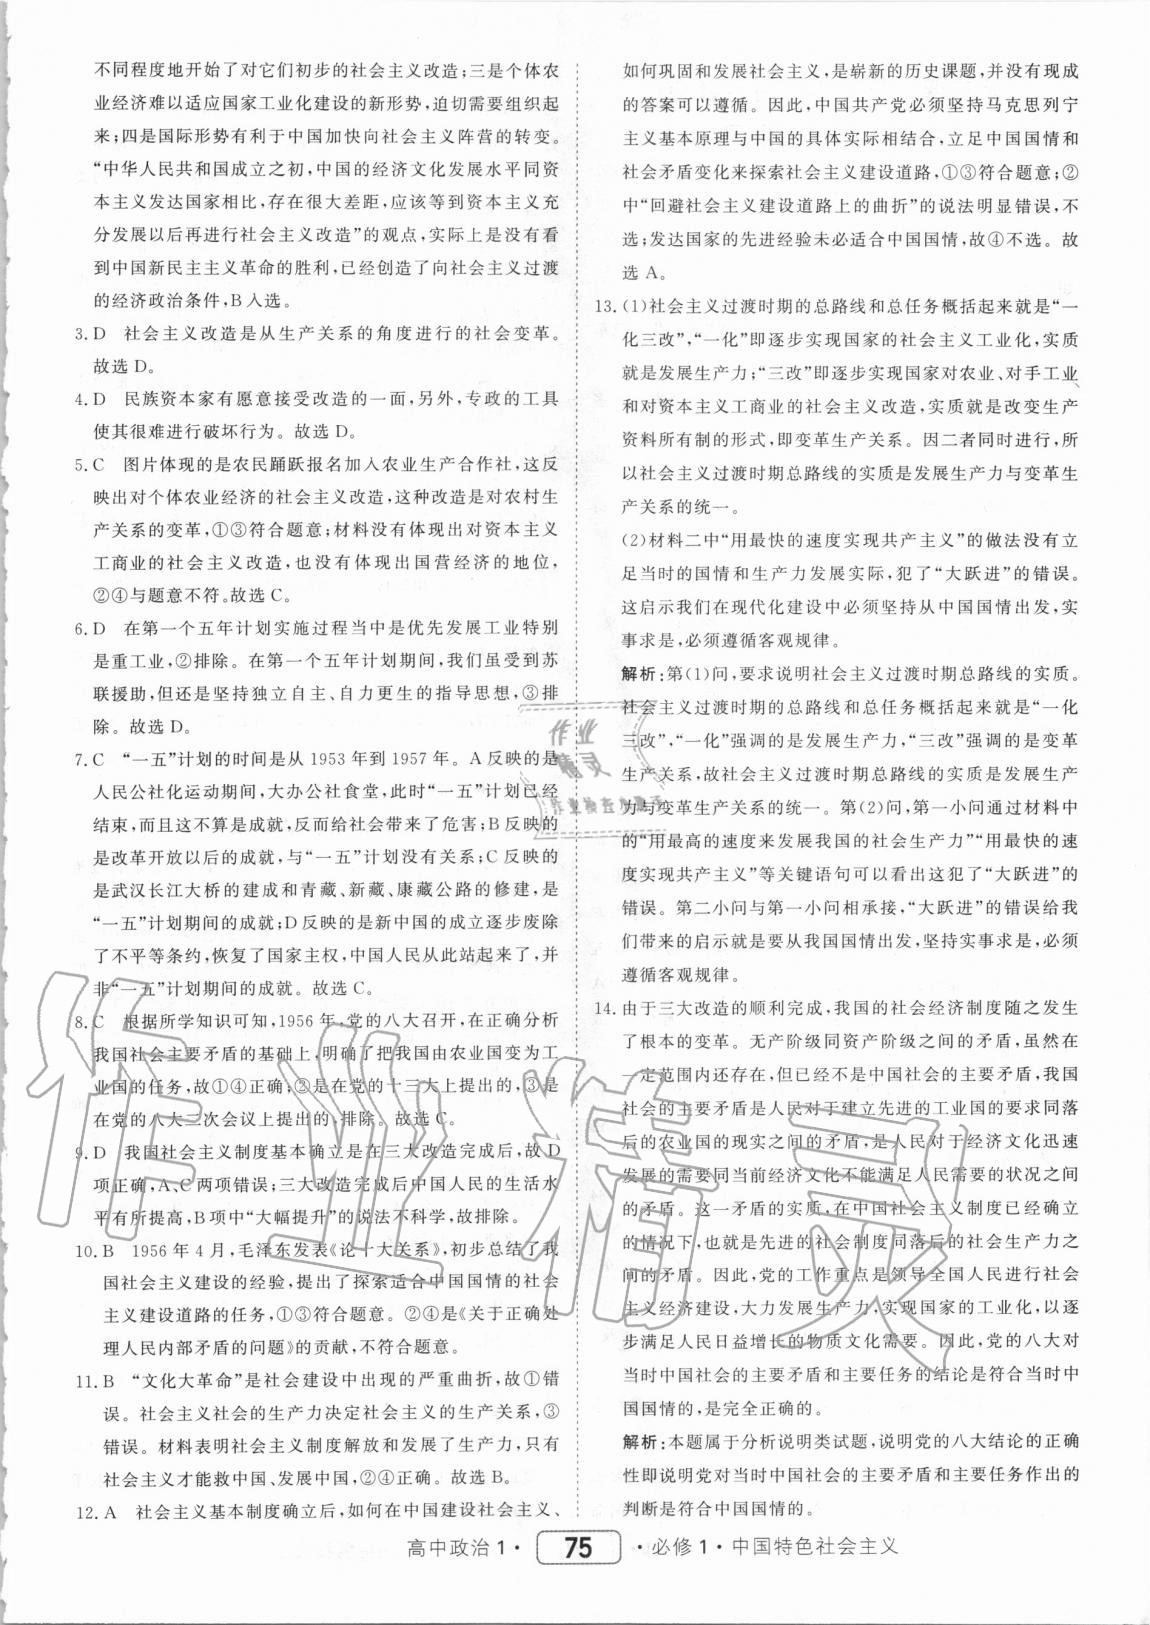 不同程度地开始了对它们初步的社会主义改造;三是个体农
业经济难以适应国家工业化建设的新形势，迫切需要组织起
来;四是国际形势有利于中国加快向社会主义阵营的转变。
“中华人民共和国成立之初，中国的经济文化发展水平同资
本主义发达国家相比，存在很大差距，应该等到资本主义充
分发展以后再进行社会主义改造”的观点，实际上是没有看
到中国新民主主义革命的胜利，已经创造了向社会主义过渡
的经济政治条件，B入选。
3. D　社会主义改造是从生产关系的角度进行的社会变革。
故选 D。
4. D　民族资本家有愿意接受改造的一面，另外，专政的工具
使其很难进行破坏行为。故选 D。
5. C　图片体现的是农民踊跃报名加入农业生产合作社，这反
映出对个体农业经济的社会主义改造，这种改造是对农村生
产关系的变革，①③符合题意;材料没有体现出对资本主义
工商业的社会主义改造，也没有体现出国营经济的地位，
②④与题意不符。故选 C。
6. D　在第一个五年计划实施过程当中是优先发展工业特别
是重工业，②排除。在第一个五年计划期间，我们虽受到苏
联援助，但还是坚持独立自主、自力更生的指导思想，③排
除。故选 D。
7. C　“一五”计划的时间是从 1953 年到 1957 年。A 反映的是
人民公社化运动期间，大办公社食堂，此时“一五”计划已经
结束，而且这不算是成就，反而给社会带来了危害;B 反映的
是改革开放以后的成就，与“一五”计划没有关系;C 反映的
是武汉长江大桥的建成和青藏、新藏、康藏公路的修建，是
“一五”计划期间的成就;D 反映的是新中国的成立逐步废除
了不平等条约，恢复了国家主权，中国人民从此站起来了，并
非“一五”计划期间的成就。故选 C。
8. C　根据所学知识可知，1956 年，党的八大召开，在正确分析
我国社会主要矛盾的基础上，明确了把我国由农业国变为工
业国的任务，故①④正确;②是在党的十三大上提出的，③是
在党的八大二次会议上提出的，排除。故选 C。
9. D　我国社会主义制度基本确立是在三大改造完成后，故 D
项正确，A、C 两项错误;三大改造完成后中国人民的生活水
平有所提高，B 项中“大幅提升”的说法不科学，故排除。
10. B　1956 年 4 月，毛泽东发表《论十大关系》，初步总结了我
国社会主义建设的经验，提出了探索适合中国国情的社会
主义建设道路的任务，①③符合题意。②④是《关于正确处
理人民内部矛盾的问题》的贡献，不符合题意。
11. B　“文化大革命”是社会建设中出现的严重曲折，故①错
误。社会主义社会的生产力决定社会主义的生产关系，③
错误。材料表明社会主义制度解放和发展了生产力，只有
社会主义才能救中国、发展中国，②④正确。故选 B。
12. A　社会主义基本制度确立后，如何在中国建设社会主义、
如何巩固和发展社会主义，是崭新的历史课题，并没有现成
的答案可以遵循。因此，中国共产党必须坚持马克思列宁
主义基本原理与中国的具体实际相结合，立足中国国情和
社会矛盾变化来探索社会主义建设道路，①③符合题意;②
中“回避社会主义建设道路上的曲折”的说法明显错误，不
选;发达国家的先进经验未必适合中国国情，故④不选。故
选 A。
13. (1)社会主义过渡时期的总路线和总任务概括起来就是“一
化三改”，“一化”即逐步实现国家的社会主义工业化，实质
就是发展生产力;“三改”即逐步实现国家对农业、对手工业
和对资本主义工商业的社会主义改造，实质就是改变生产
资料所有制的形式，即变革生产关系。因二者同时进行，所
以社会主义过渡时期总路线的实质是发展生产力与变革生
产关系的统一。
(2)材料二中“用最快的速度实现共产主义”的做法没有立
足当时的国情和生产力发展实际，犯了“大跃进”的错误。
这启示我们在现代化建设中必须坚持从中国国情出发，实
事求是，必须遵循客观规律。
解析:第(1)问，要求说明社会主义过渡时期总路线的实质。
社会主义过渡时期的总路线和总任务概括起来就是“一化
三改”，“一化”强调的是发展生产力，“三改”强调的是变革
生产关系，故社会主义过渡时期总路线的实质是发展生产
力与变革生产关系的统一。第(2)问，第一小问通过材料中
的“用最高的速度来发展我国的社会生产力”“用最快的速
度实现共产主义”等关键语句可以看出这犯了“大跃进”的
错误。第二小问与第一小问相承接，“大跃进”的错误给我
们带来的启示就是要从我国国情出发，坚持实事求是，必须
遵循客观规律。
14. 由于三大改造的顺利完成，我国的社会经济制度随之发生
了根本的变革。无产阶级同资产阶级之间的矛盾，虽然在
一定范围内还存在，但已经不是中国社会的主要矛盾，我国
社会的主要矛盾是人民对于建立先进的工业国的要求同落
后的农业国的现实之间的矛盾，是人民对于经济文化迅速
发展的需要同当前经济文化不能满足人民需要的状况之间
的矛盾。这一矛盾的实质，在中国社会主义制度已经确立
的情况下，也就是先进的社会制度同落后的社会生产力之
间的矛盾。因此，党的工作重点是领导全国人民进行社会
主义经济建设，大力发展生产力，实现国家的工业化，以逐
步满足人民日益增长的物质文化需要。因此，党的八大对
当时中国社会的主要矛盾和主要任务的结论是符合当时中
国国情的，是完全正确的。
解析:本题属于分析说明类试题，说明党的八大结论的正确
性即说明党对当时中国社会的主要矛盾和主要任务作出的
判断是符合中国国情的。
作业
精灵
作业精灵
高中政治 1 · 75 · 必修 1 · 中国特色社会主义